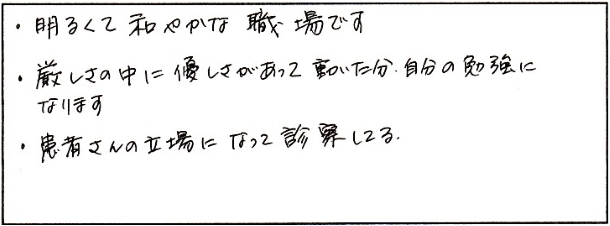 ・明るくて和やかな職場です
・厳しさの中に優しさがあって動いた分、自分の勉強に
なります
・患者さんの立場になって診察してる。